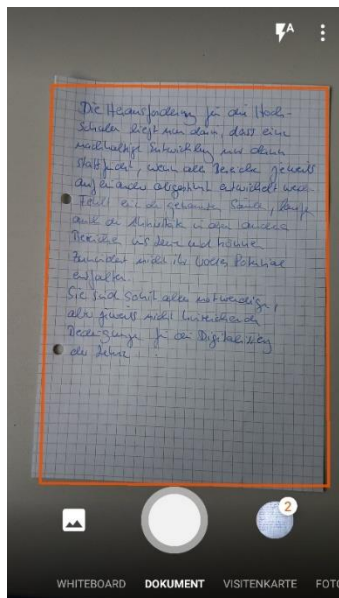 A
Die Herausforderung für die Hoch-
schulen liegt nun darin, dass eine
nachhaltige Entwicklung nur dann
stattfindet, wenn alle Bereiche jeweils
aufeinander abgestimmt entwickelt wer-
Fehlt eine der genannten Säulen, laufen
auch die Aktivitäten in den anderen
Bereichen ins Leere und können
zumindest nicht ihr volles Potential
entfalten.
Sie sind somit alles notwendige,
aber jeweils nicht hinreichende
Bedingungen für die Digitalisierung
der Lehre
2
WHITEBOARD DOKUMENT VISITENKARTE FOTO